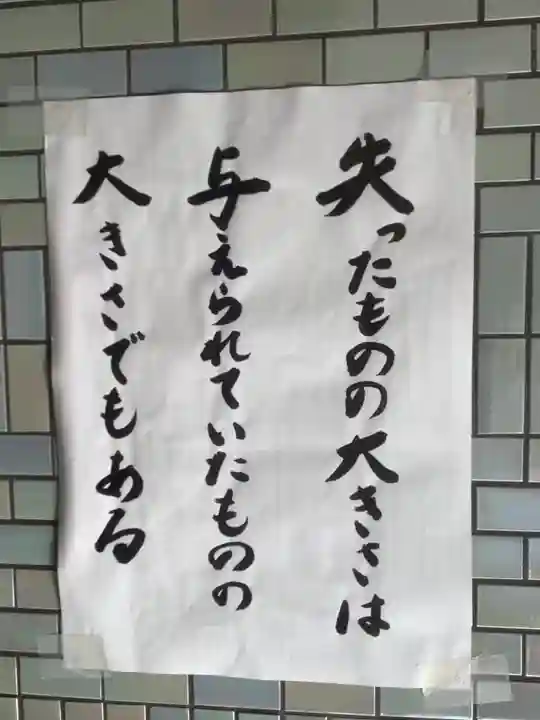 失ったものの大きさは
与えられていたものの
大きさでもある